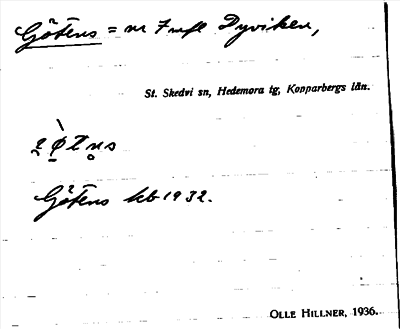 Götens = nr 7 infl Dyviken,
St. Skedvi sn, Hedemora tg, Kopparbergs län.
Götens kb 1932.
OLLE HILLNER, 1936.